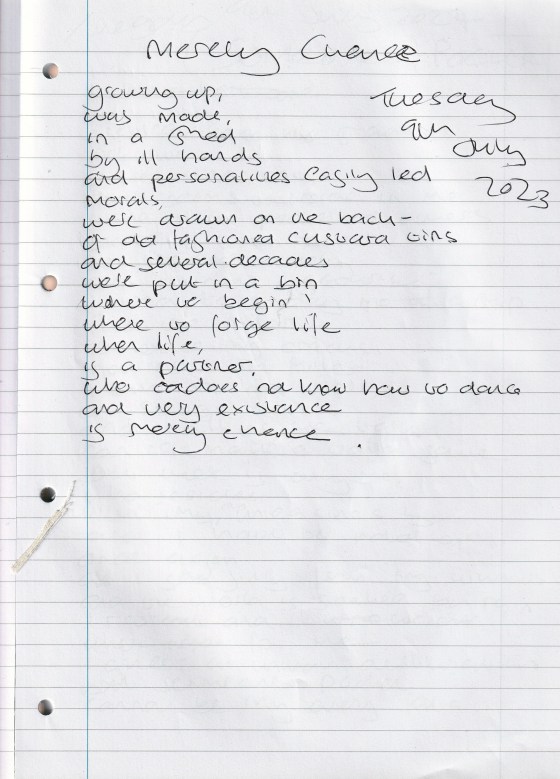 Merely Chance
Tuesday
9th
July
2023
growing up,
was made,
in a shed
by ill hands
and personalities easily led
morals,
were drawn on the back -
of old fashioned custard tins
and several decades
were put in a bin
where to begin!
where to forge life
when life,
is a partner,
who does not know how to dance
and very existance
is merely chance .